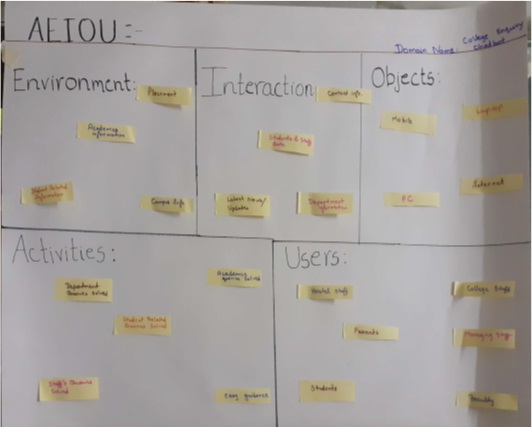 AEIOU:-
Domain Name: College Enquiry
Chatbot
Environment:
Placement
Academics
information
Student Related
Information
Campus Info
Interaction
Contact info
Students & Staff
data
Latest news/
Updates
Department
information
Objects:
Mobile
Laptop
PC
Internet
Activities:
Department
Queries Solved
Academic
queries Solved
Student Related
Queries Solved
Staff's Queries
Solved
easy guidance
Users:
Hostel Staff
College Staff
Parents
Managing Staff
Students
Faculty